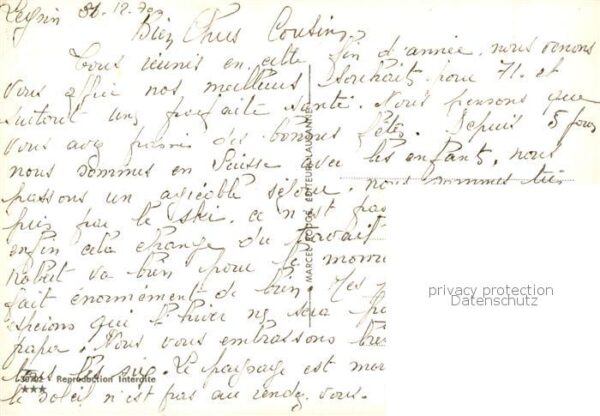 Leysin 31.12.70
Bien Chers Cousins
Tous réunis en cette fin d'année. nous venons
vous offrir nos meilleurs souhaits pour 71. et
surtout une parfaite santé. Nous pensons que
vous avez passé des bonnes fêtes. Depuis 5 jours
nous sommes en Suisse avec les enfants, nous
passons un agréable séjour. nous sommes très
pris par le ski. ce n'est pas
enfin cela change du travail
Robert va bien pour le
fait énormément de bien. Mes
que l'hiver ne sera
papa. Nous vous embrassons
tous les six. Le paysage est
le soleil n'est pas au rendez vous.
MARCEL EDITEUR LAUSANNE
privacy protection
Datenschutz
Reproduction Interdite